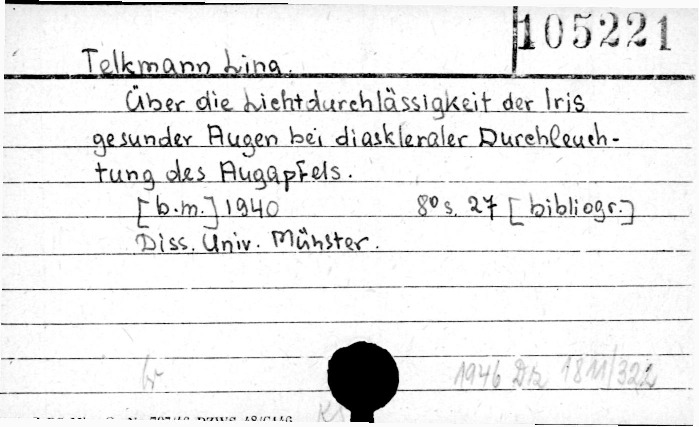 105221
Telkmann Lina.
Über die Lichtdurchlässigkeit der Iris
gesunder Augen bei diaskleraler Durchleuch-
tung des Augapfels.
[b.m.] 1940 8º s. 27 [bibliogr.]
Diss. Univ. Münster.
1946